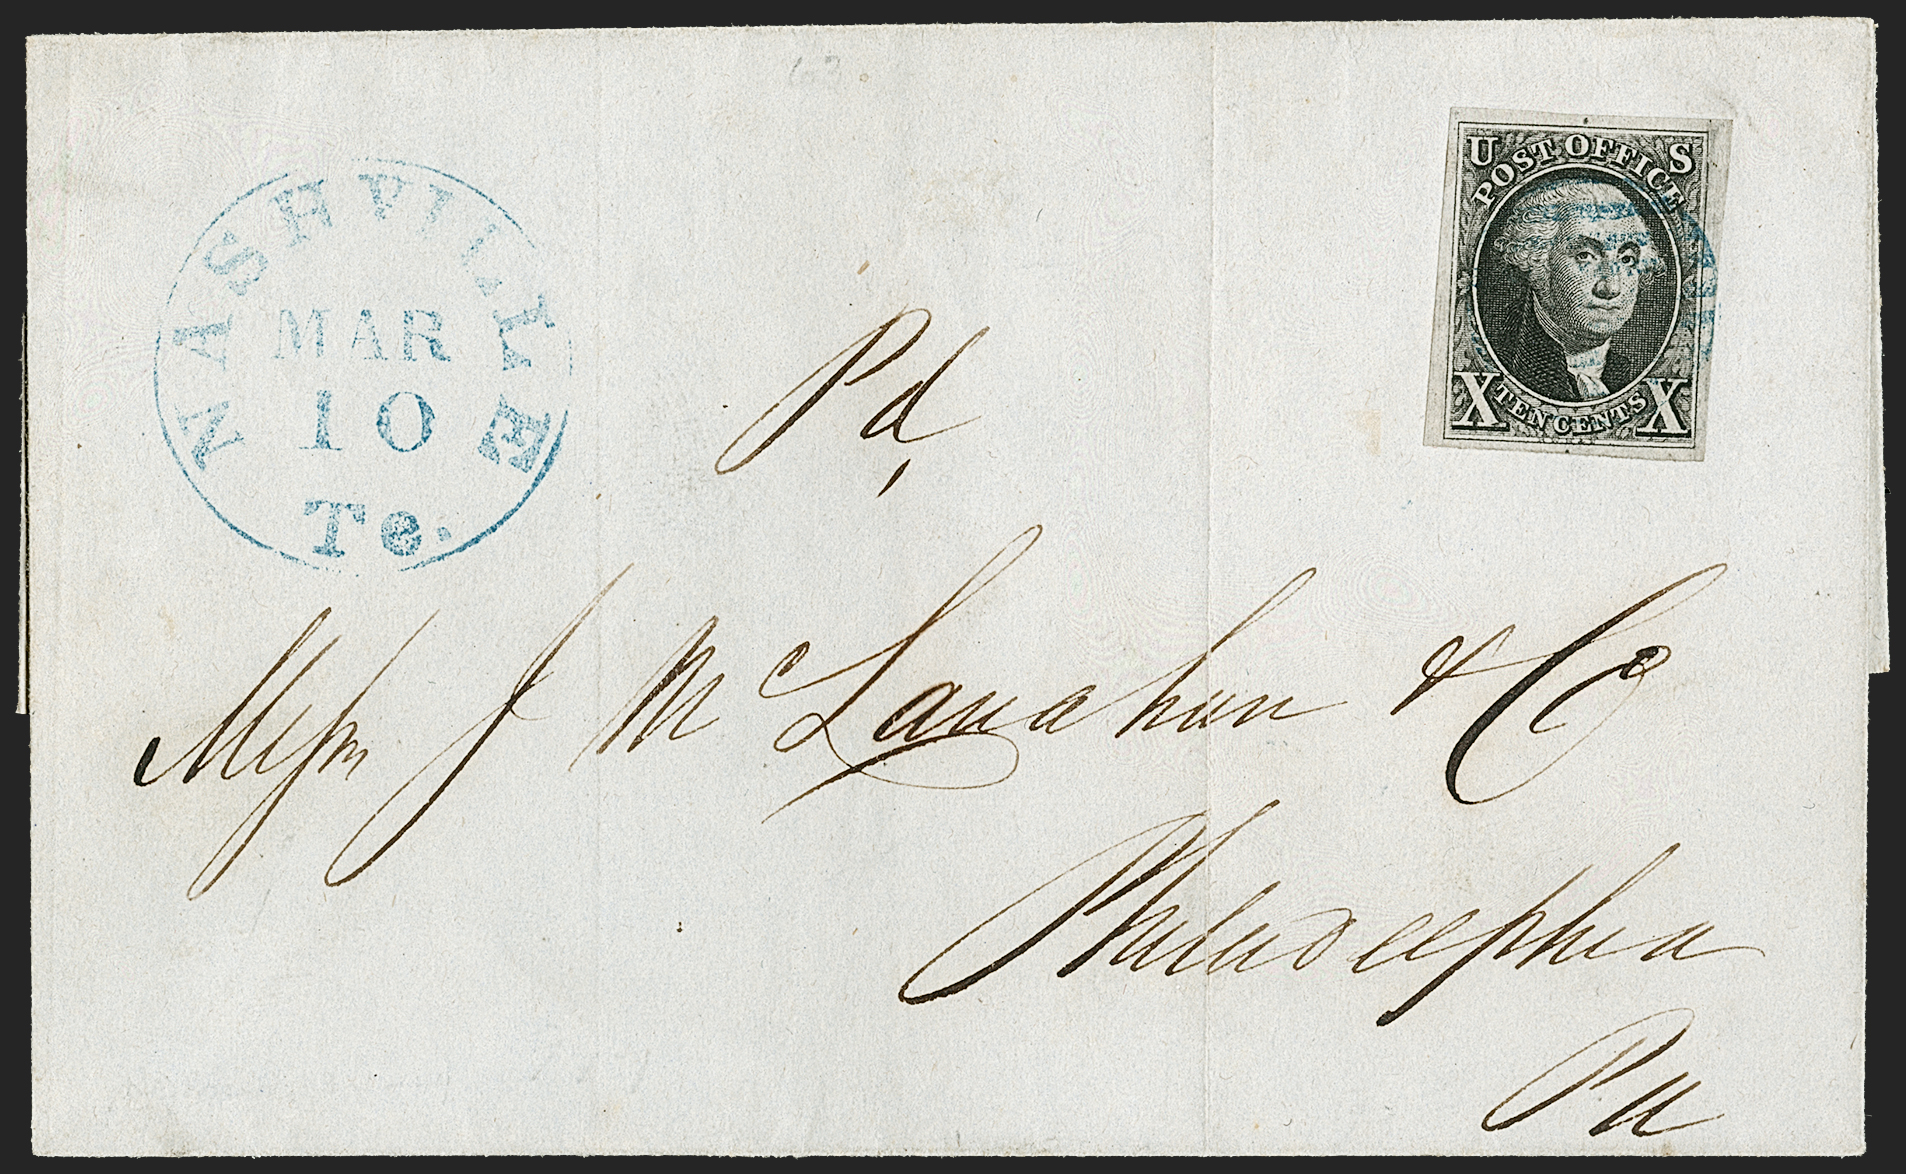 NASHVILLE
MAR
10
Te.
U S
POST OFFICE
X TEN CENTS X
Pd
Messrs J McLanahan & Co
Philadelphia
Pa